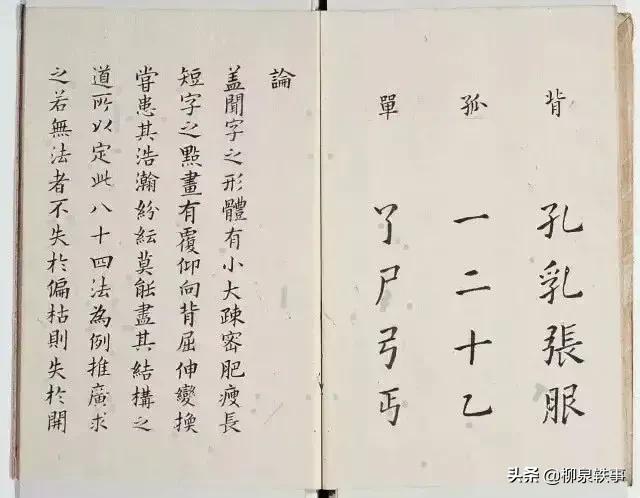 背 孔乳張眼
孤 一二十乙
單 丫尸弓丐
論
蓋聞字之形體有小大疎密肥瘦長
短字之點畫有覆仰向背屈伸變換
甞患其浩瀚紛紜莫能盡其結構之
道所以定此八十四法為例推廣求
之若無法者不失於偏枯則失於開
头条 @柳泉轶事